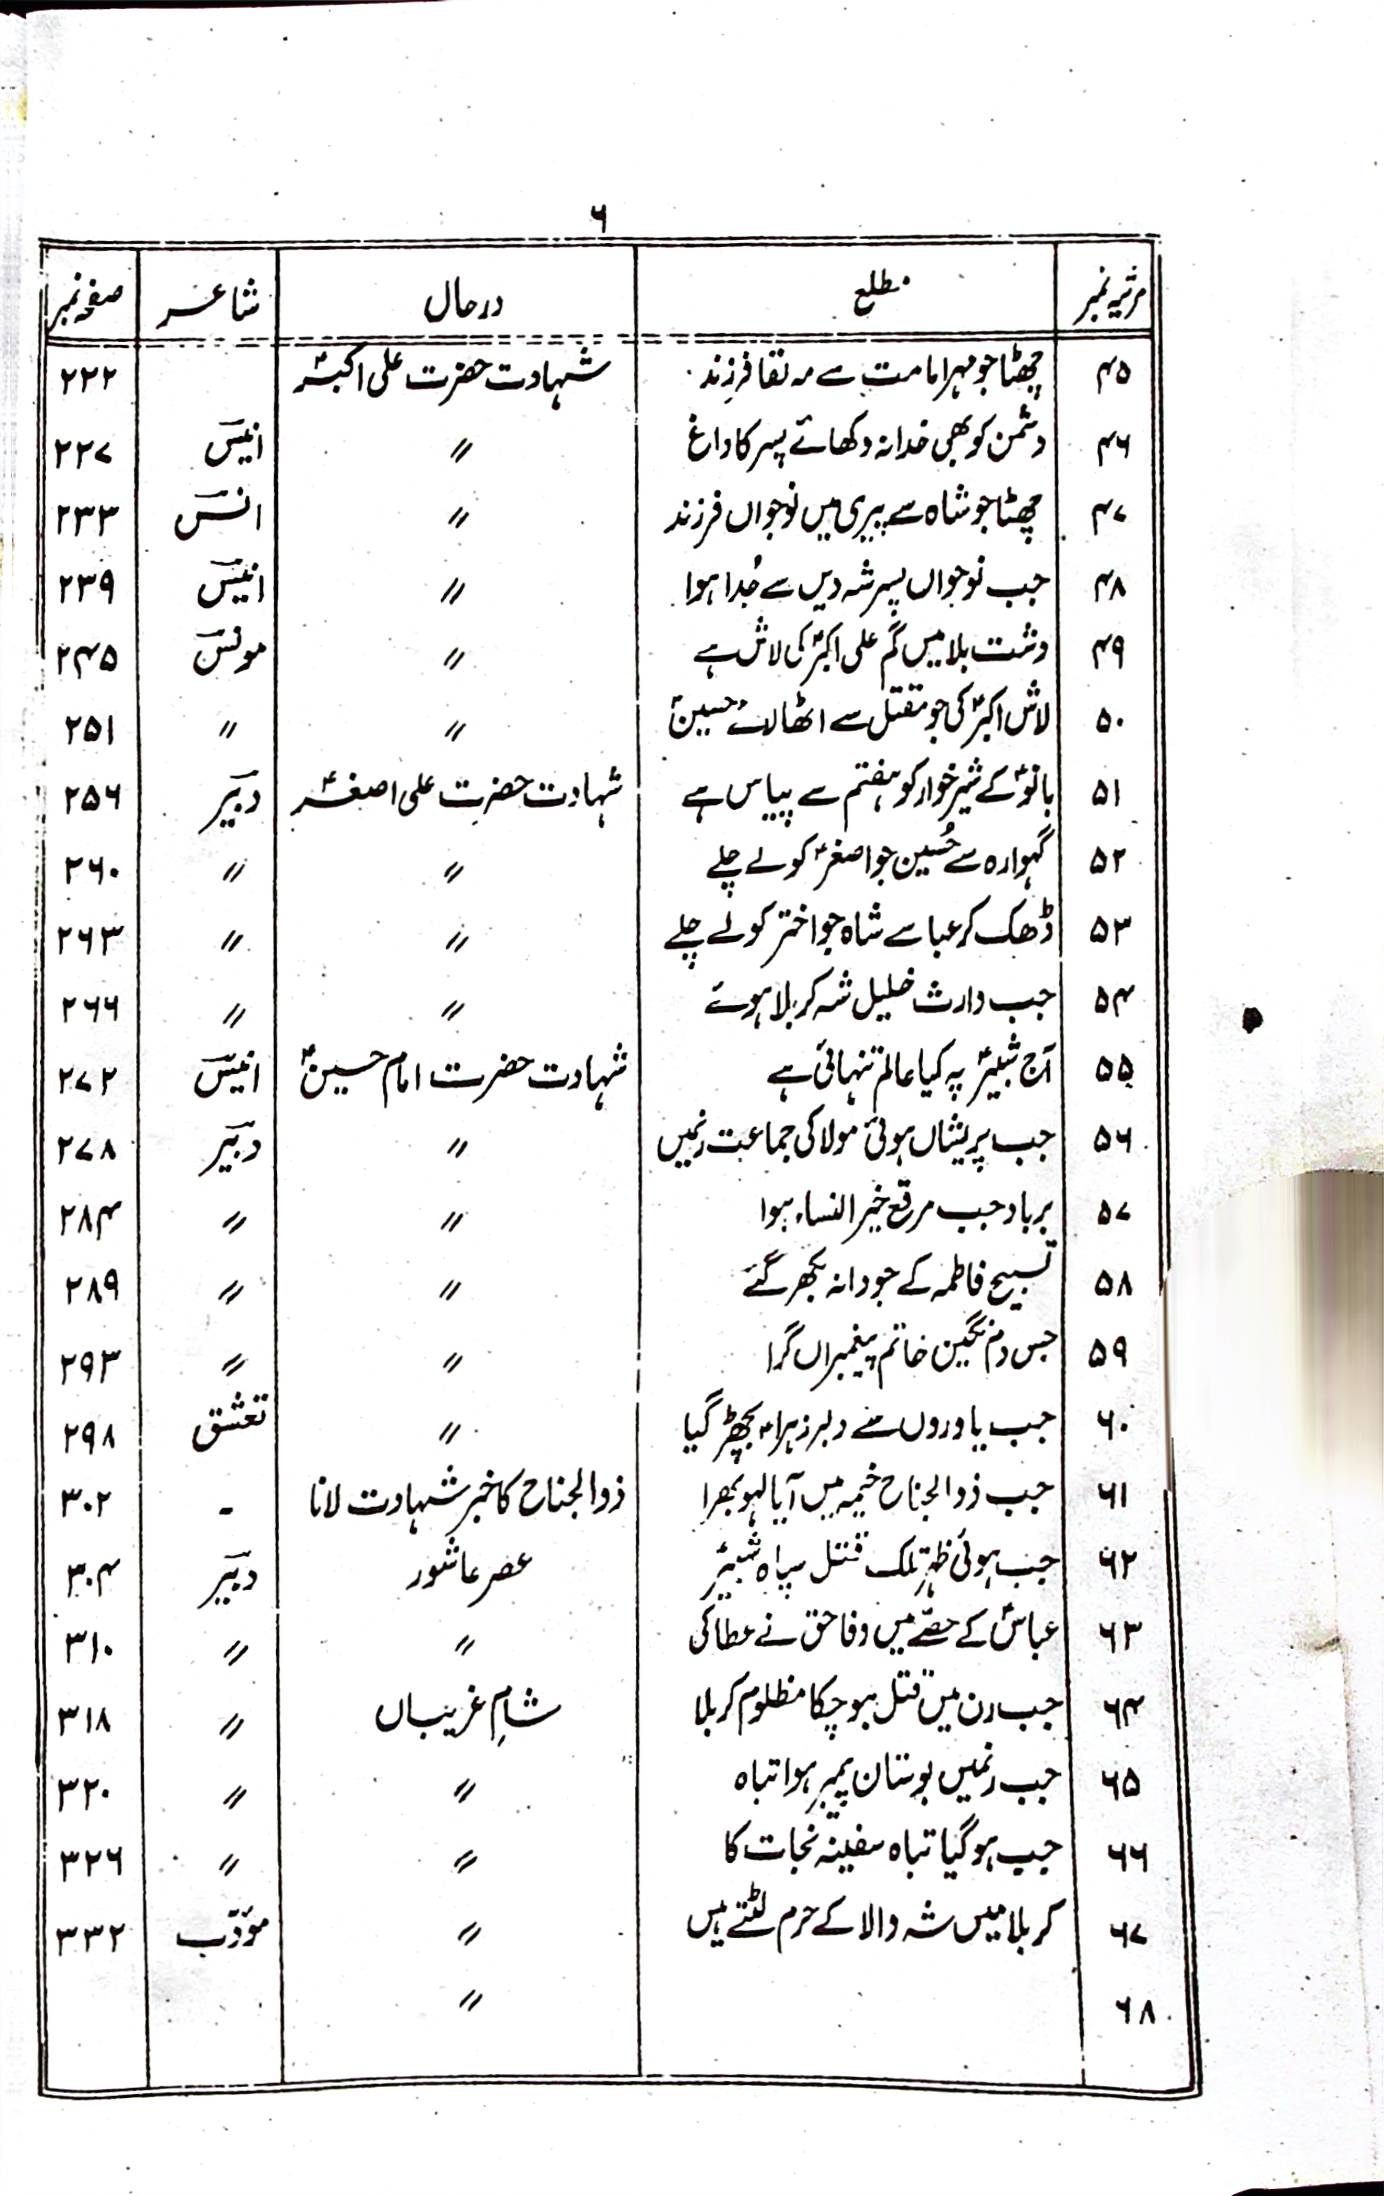 ۶
مرثیہ نمبر مطلع درحال شاعر صفحہ نمبر
۴۵ چھٹا جو مہر امامت سے مہ لقا فرزند شہادت حضرت علی اکبرؑ ۲۲۲
۴۶ دشمن کو بھی خدا نہ دکھائے پسر کا داغ 〃 انیسؔ ۲۲۷
۴۷ چھٹا جو شاہ سے پیری میں نوجواں فرزند 〃 انسؔ ۲۳۳
۴۸ جب نوجواں پسر شہ دیں سے جُدا ہوا 〃 انیسؔ ۲۳۹
۴۹ دشت بلا میں گم علی اکبرؑ کی لاش ہے 〃 مونسؔ ۲۴۵
۵۰ لاش اکبرؑ کی جو مقتل سے اٹھا لائے حسینؑ 〃 〃 ۲۵۱
۵۱ بانوؑ کے شیر خوار کو ہفتم سے پیاس ہے شہادت حضرت علی اصغرؑ دبیرؔ ۲۵۶
۵۲ گہوارہ سے حُسین جو اصغرؑ کو لے چلے 〃 〃 ۲۶۰
۵۳ ڈھک کر عبا سے شاہ جو اختر کو لے چلے 〃 〃 ۲۶۳
۵۴ جب وارث خلیل شہ کربلا ہوئے 〃 〃 ۲۶۶
۵۵ آج شبیرؑ پہ کیا عالم تنہائی ہے شہادت حضرت امام حسینؑ انیسؔ ۲۷۲
۵۶ جب پریشاں ہوئی مولا کی جماعت رنمیں 〃 دبیرؔ ۲۷۸
۵۷ برباد جب مرقع خیر النساء ہوا 〃 〃 ۲۸۴
۵۸ تسبیح فاطمہ کے جو دانہ بکھر گئے 〃 〃 ۲۸۹
۵۹ جس دم نگین خاتم پیغمبراں گرا 〃 〃 ۲۹۳
۶۰ جب یاوروں سے دلبر زہراء بچھڑ گیا 〃 تعشق ۲۹۸
۶۱ جب ذوالجناح خیمہ میں آیا لہو بھرا ذوالجناح کا خبر شہادت لانا - ۳۰۲
۶۲ جب ہوئی ظہر تلک قتل سپاہ شبیرؑ عصر عاشور دبیرؔ ۳۰۴
۶۳ عباسؑ کے حصّے میں وفا حق نے عطا کی 〃 〃 ۳۱۰
۶۴ جب رن میں قتل ہو چکا مظلوم کربلا شامِ غریباں 〃 ۳۱۸
۶۵ جب رنمیں بوستان پیمبر ہوا تباہ 〃 〃 ۳۲۰
۶۶ جب ہو گیا تباہ سفینہ نجات کا 〃 〃 ۳۲۶
۶۷ کربلا میں شہ والا کے حرم لٹتے ہیں 〃 مؤدّب ۳۳۲
۶۸ 〃